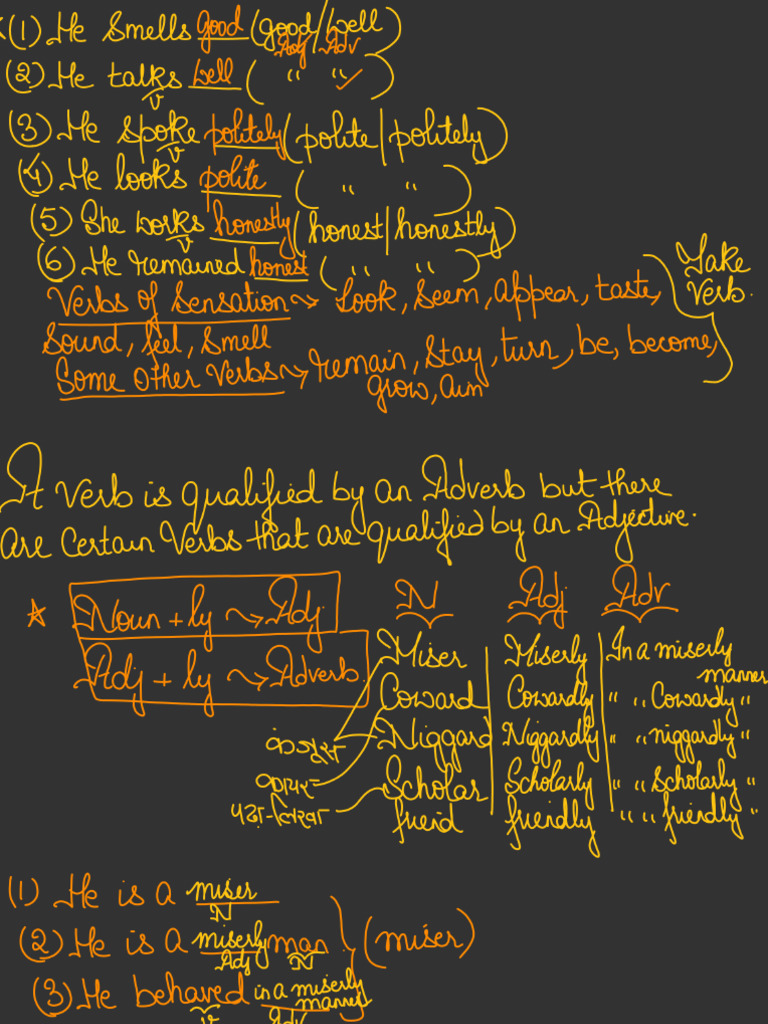 (1) He Smells good (good/well)
Adj Adv
(2) He talks well ( " " ✓)
v
(3) He spoke politely (polite/politely)
v
(4) He looks polite ( " " )
(5) She works honestly (honest/honestly)
v
(6) He remained honest ( " " )
Take Verb.
Verbs of Sensation → Look, Seem, appear, taste,
Sound, feel, smell
Some Other Verbs → remain, Stay, turn, be, become,
grow, Aim
A Verb is qualified by an Adverb but there
are Certain Verbs that are qualified by an Adjective.
Noun + ly → Adj
Adj + ly → Adverb
N Adj Adv
Miser Miserly In a miserly manner
Coward Cowardly " " Cowardly "
Niggard Niggardly " " niggardly "
Scholar Scholarly " " Scholarly "
friend friendly " " friendly "
कंजूस
कायर
पढ़ा-लिखा
(1) He is a miser
N
(2) He is a miserly man (miser)
Adj N
(3) He behaved in a miserly manner
v Adv